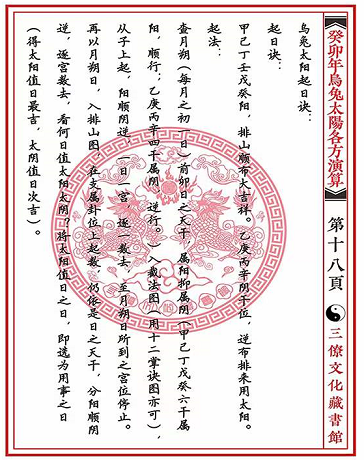 《癸卯年烏兔太陽各方演算》
第十八頁
三僚文化藏書館
乌兔太阳起日诀：
起日诀：
甲己丁壬戊癸阳，排山顺布大吉祥。乙庚丙辛阴干位，逆布排来用太阳。
起法：
查月朔（每月之初一日）前卯日之天干，属阳抑属阴（甲己丁戊癸六干属
阳，顺行，乙庚丙辛四干属阴，逆行。）入截法图（用十二掌诀图亦可），
从子上起，阳顺阴逆，一日一宫，逐一数去，至月朔日所到之宫位停止。
再以月朔日，入排山图，在支属卦位上起数，仍依是日之天干，分阳顺阴
逆，逐宫数去，看何日值太阳太阴，将太阳值日之日，即选为用事之日
（得太阳值日最吉，太阴值日次吉）。